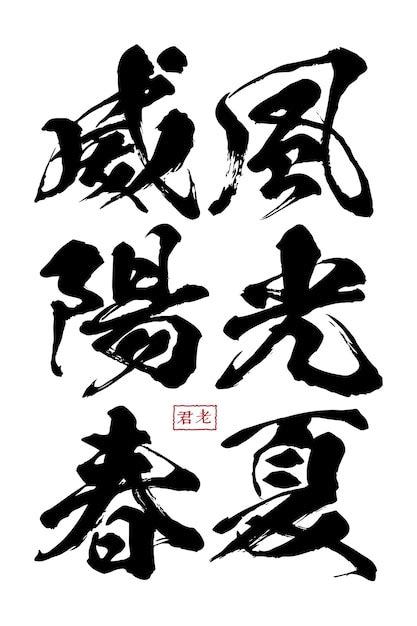 風光夏
威陽春
老君